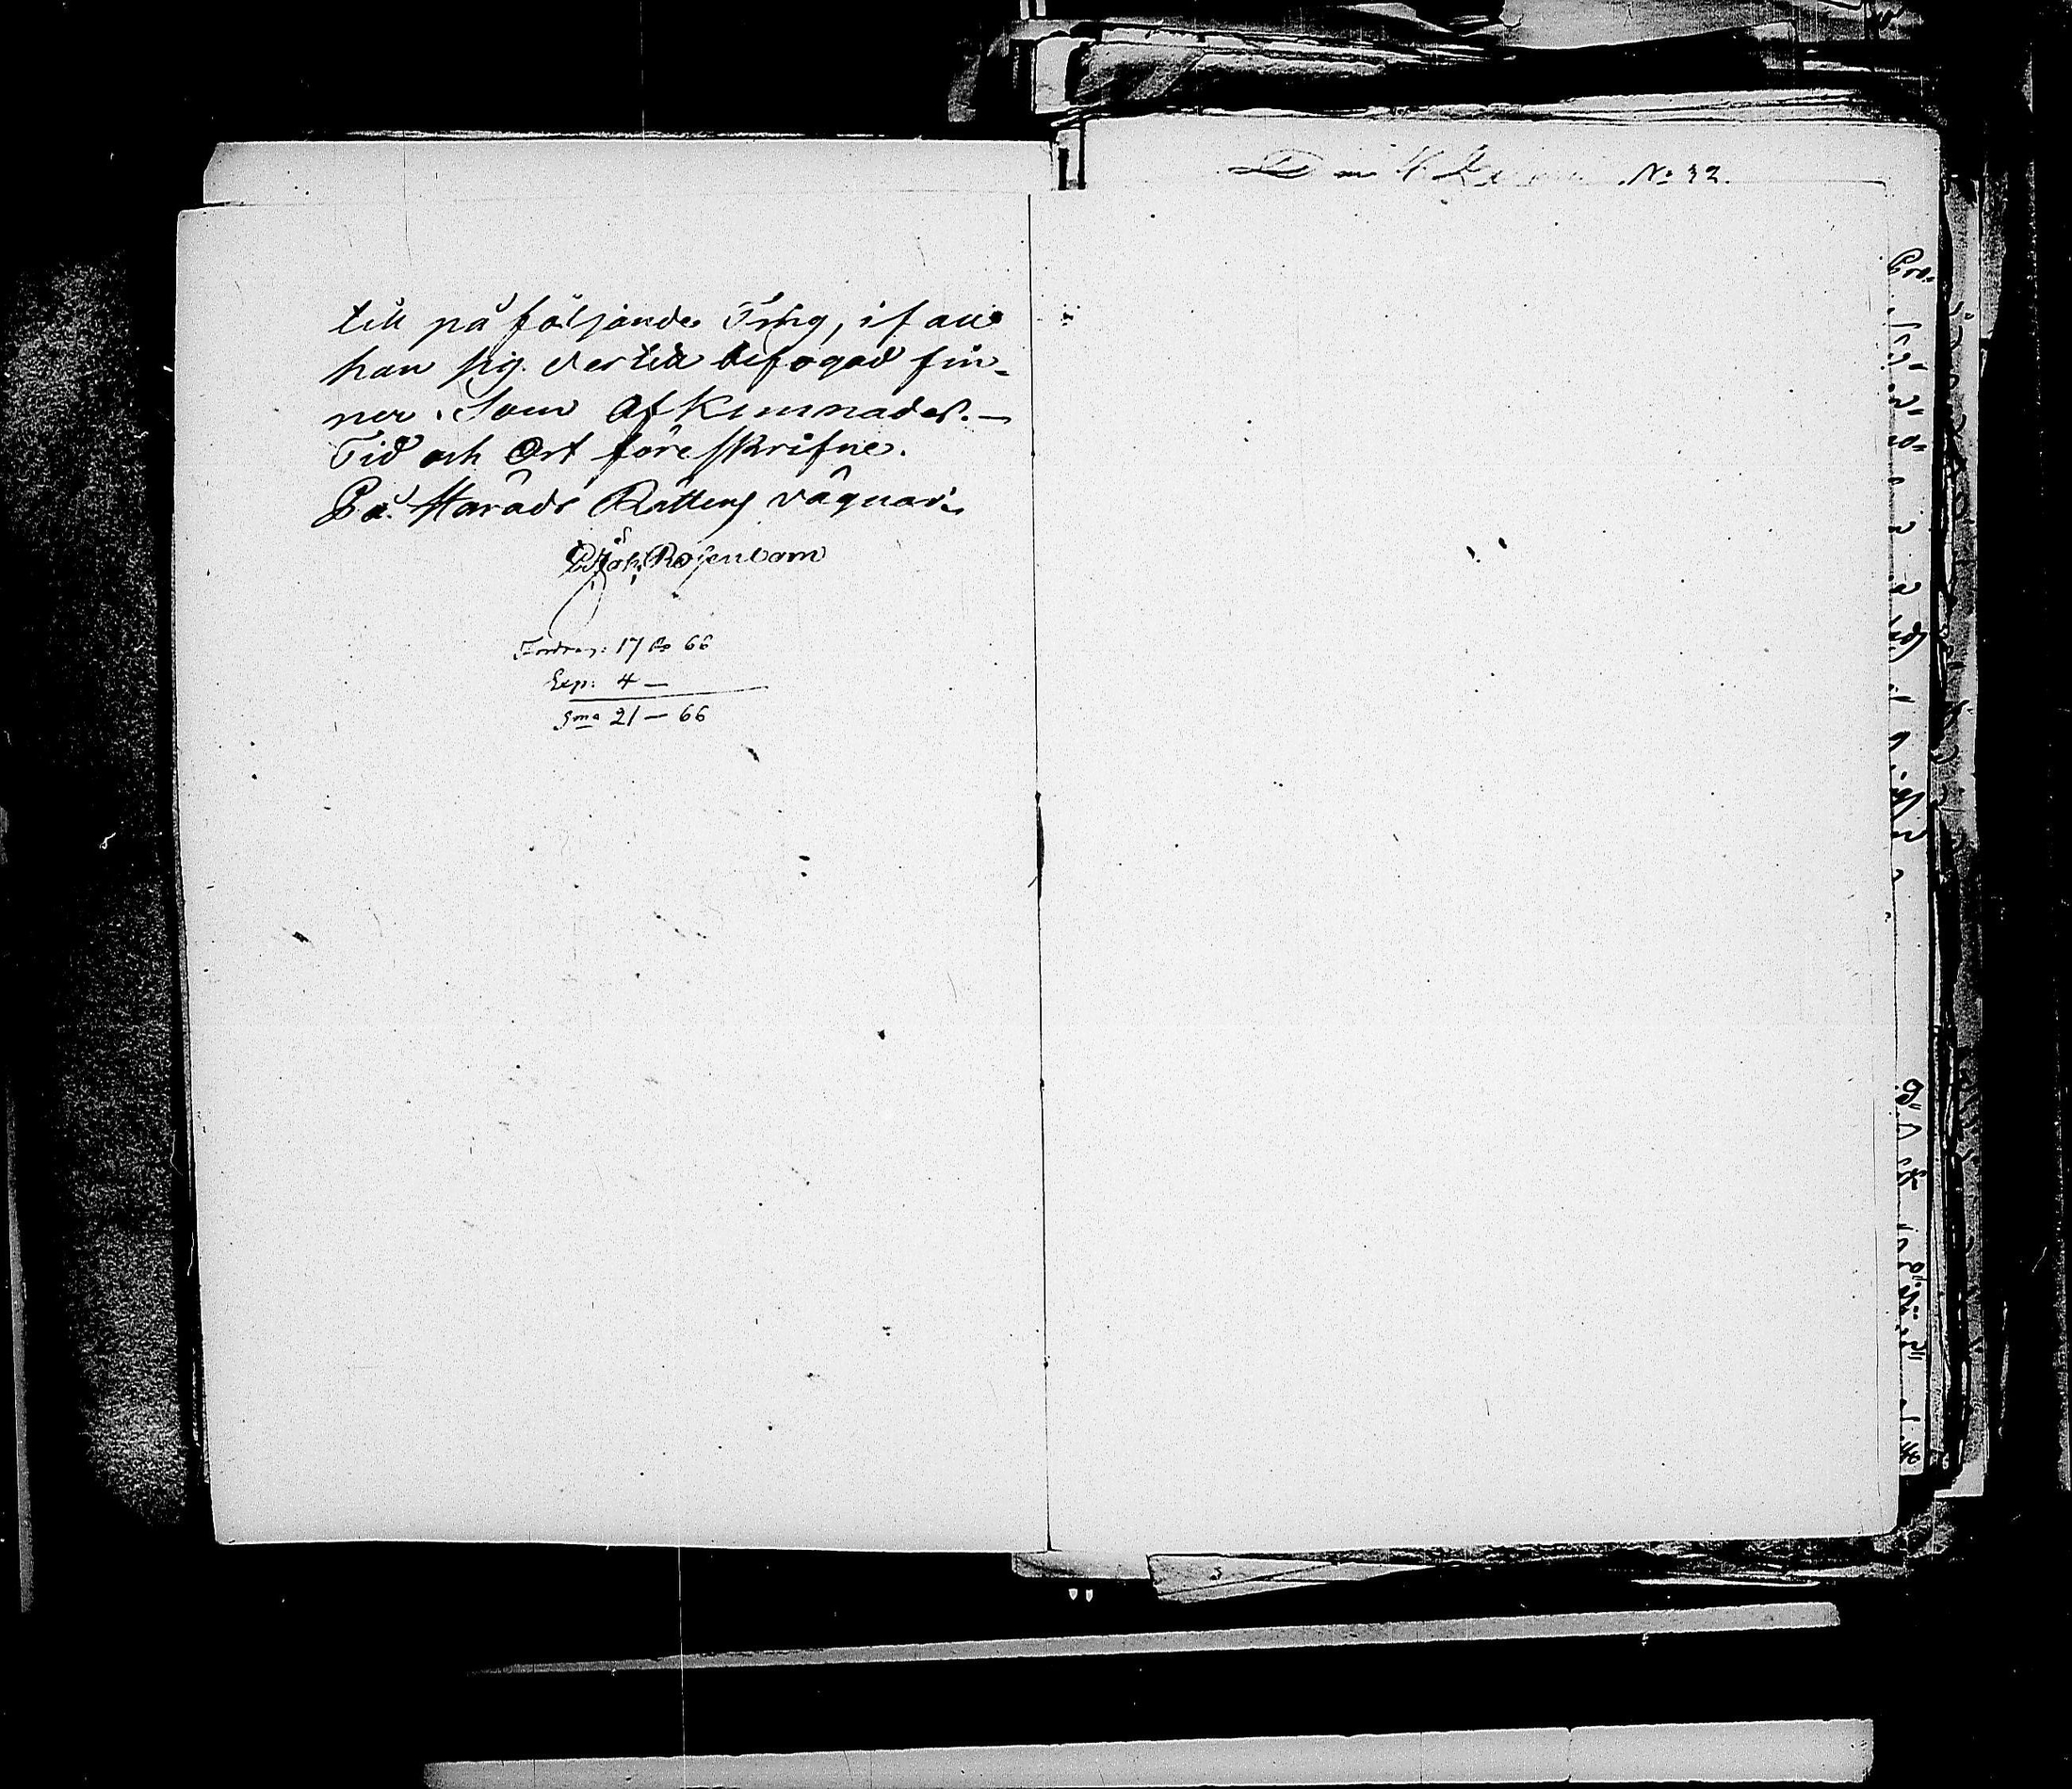 till på följande Ting, ifall
han sig dertill befogad fin-
ner. Som Afkunnades.—
Tid och Ort föreskrifne.
På Härads Rättens vägnar.
Rosenborn
17 66
Exp: 4 —
Sma 21 — 66
No 32.